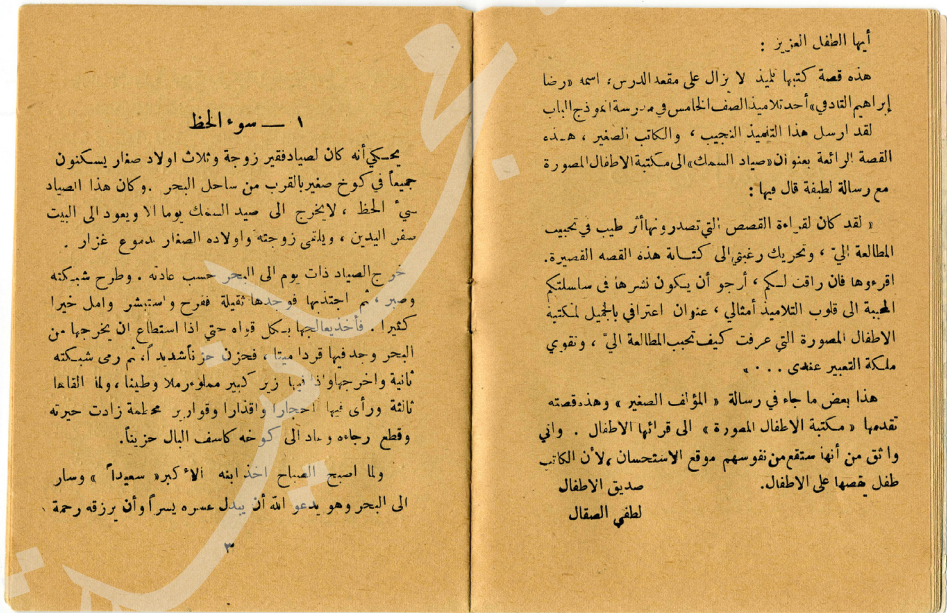 أيها الطفل العزيز :
هذه قصة كتبها تلميذ لا يزال على مقعد الدرس، اسمه «رضا
إبراهيم القادفي» أحد تلاميذ الصف الخامس في مدرسة نموذج الباب
لقد ارسل هذا التلميذ النجيب ، والكاتب الصغير ، هذه
القصة الرائعة بعنوان «صياد السمك» الى مكتبة الاطفال المصورة
مع رسالة لطيفة قال فيها :
« لقد كان لقراءة القصص التي تصدرونها أثر طيب في تحبيب
المطالعة اليّ ، وتحريك رغبتي الى كتابة هذه القصة القصيرة.
اقرءوها فان راقت لكم ، أرجو أن يكون نشرها في سلسلتكم
المحببة الى قلوب التلاميذ أمثالي ، عنوان اعترافي بالجميل لمكتبة
الاطفال المصورة التي عرفت كيف تحبب المطالعة اليّ ، وتقوي
ملكة التعبير عندي . . . »
هذا بعض ما جاء في رسالة « المؤلف الصغير » وهذه قصته
تقدمها « مكتبة الاطفال المصورة » الى قرائها الاطفال . واني
واثق من أنها ستقع من نفوسهم موقع الاستحسان ، لأن الكاتب
طفل يقصها على الاطفال.
صديق الاطفال
لطفي الصقال
١ — سوء الحظ
يحكى أنه كان لصياد فقير زوجة وثلاث اولاد صغار يسكنون
جميعاً في كوخ صغير بالقرب من ساحل البحر . وكان هذا الصياد
سيء الحظ ، لا يخرج الى صيد السمك يوما الا ويعود الى البيت
صفر اليدين ، ويلتقى زوجته واولاده الصغار بدموع غزار .
خرج الصياد ذات يوم الى البحر حسب عادته ، وطرح شبكته
وصبر ، ثم اجتذبها فوجدها ثقيلة ففرح واستبشر وامل خيرا
كثيرا . فأخذ يعالجها بكل قواه حتى اذا استطاع ان يخرجها من
البحر وجد فيها قردا ميتا ، فحزن حزناً شديداً، ثم رمى شبكته
ثانية واخرجها واذا فيها زير كبير مملوء رملا وطينا ، ولما القاها
ثالثة ورأى فيها احجارا واقذارا وقوارير محطمة زادت حيرته
وقطع رجاءه وعاد الى كوخه كاسف البال حزيناً.
ولما اصبح الصباح اخذ ابنه الأكبر « سعيداً » وسار
الى البحر وهو يدعو الله أن يبدل عسره يسراً وأن يرزقه رحمة
٣